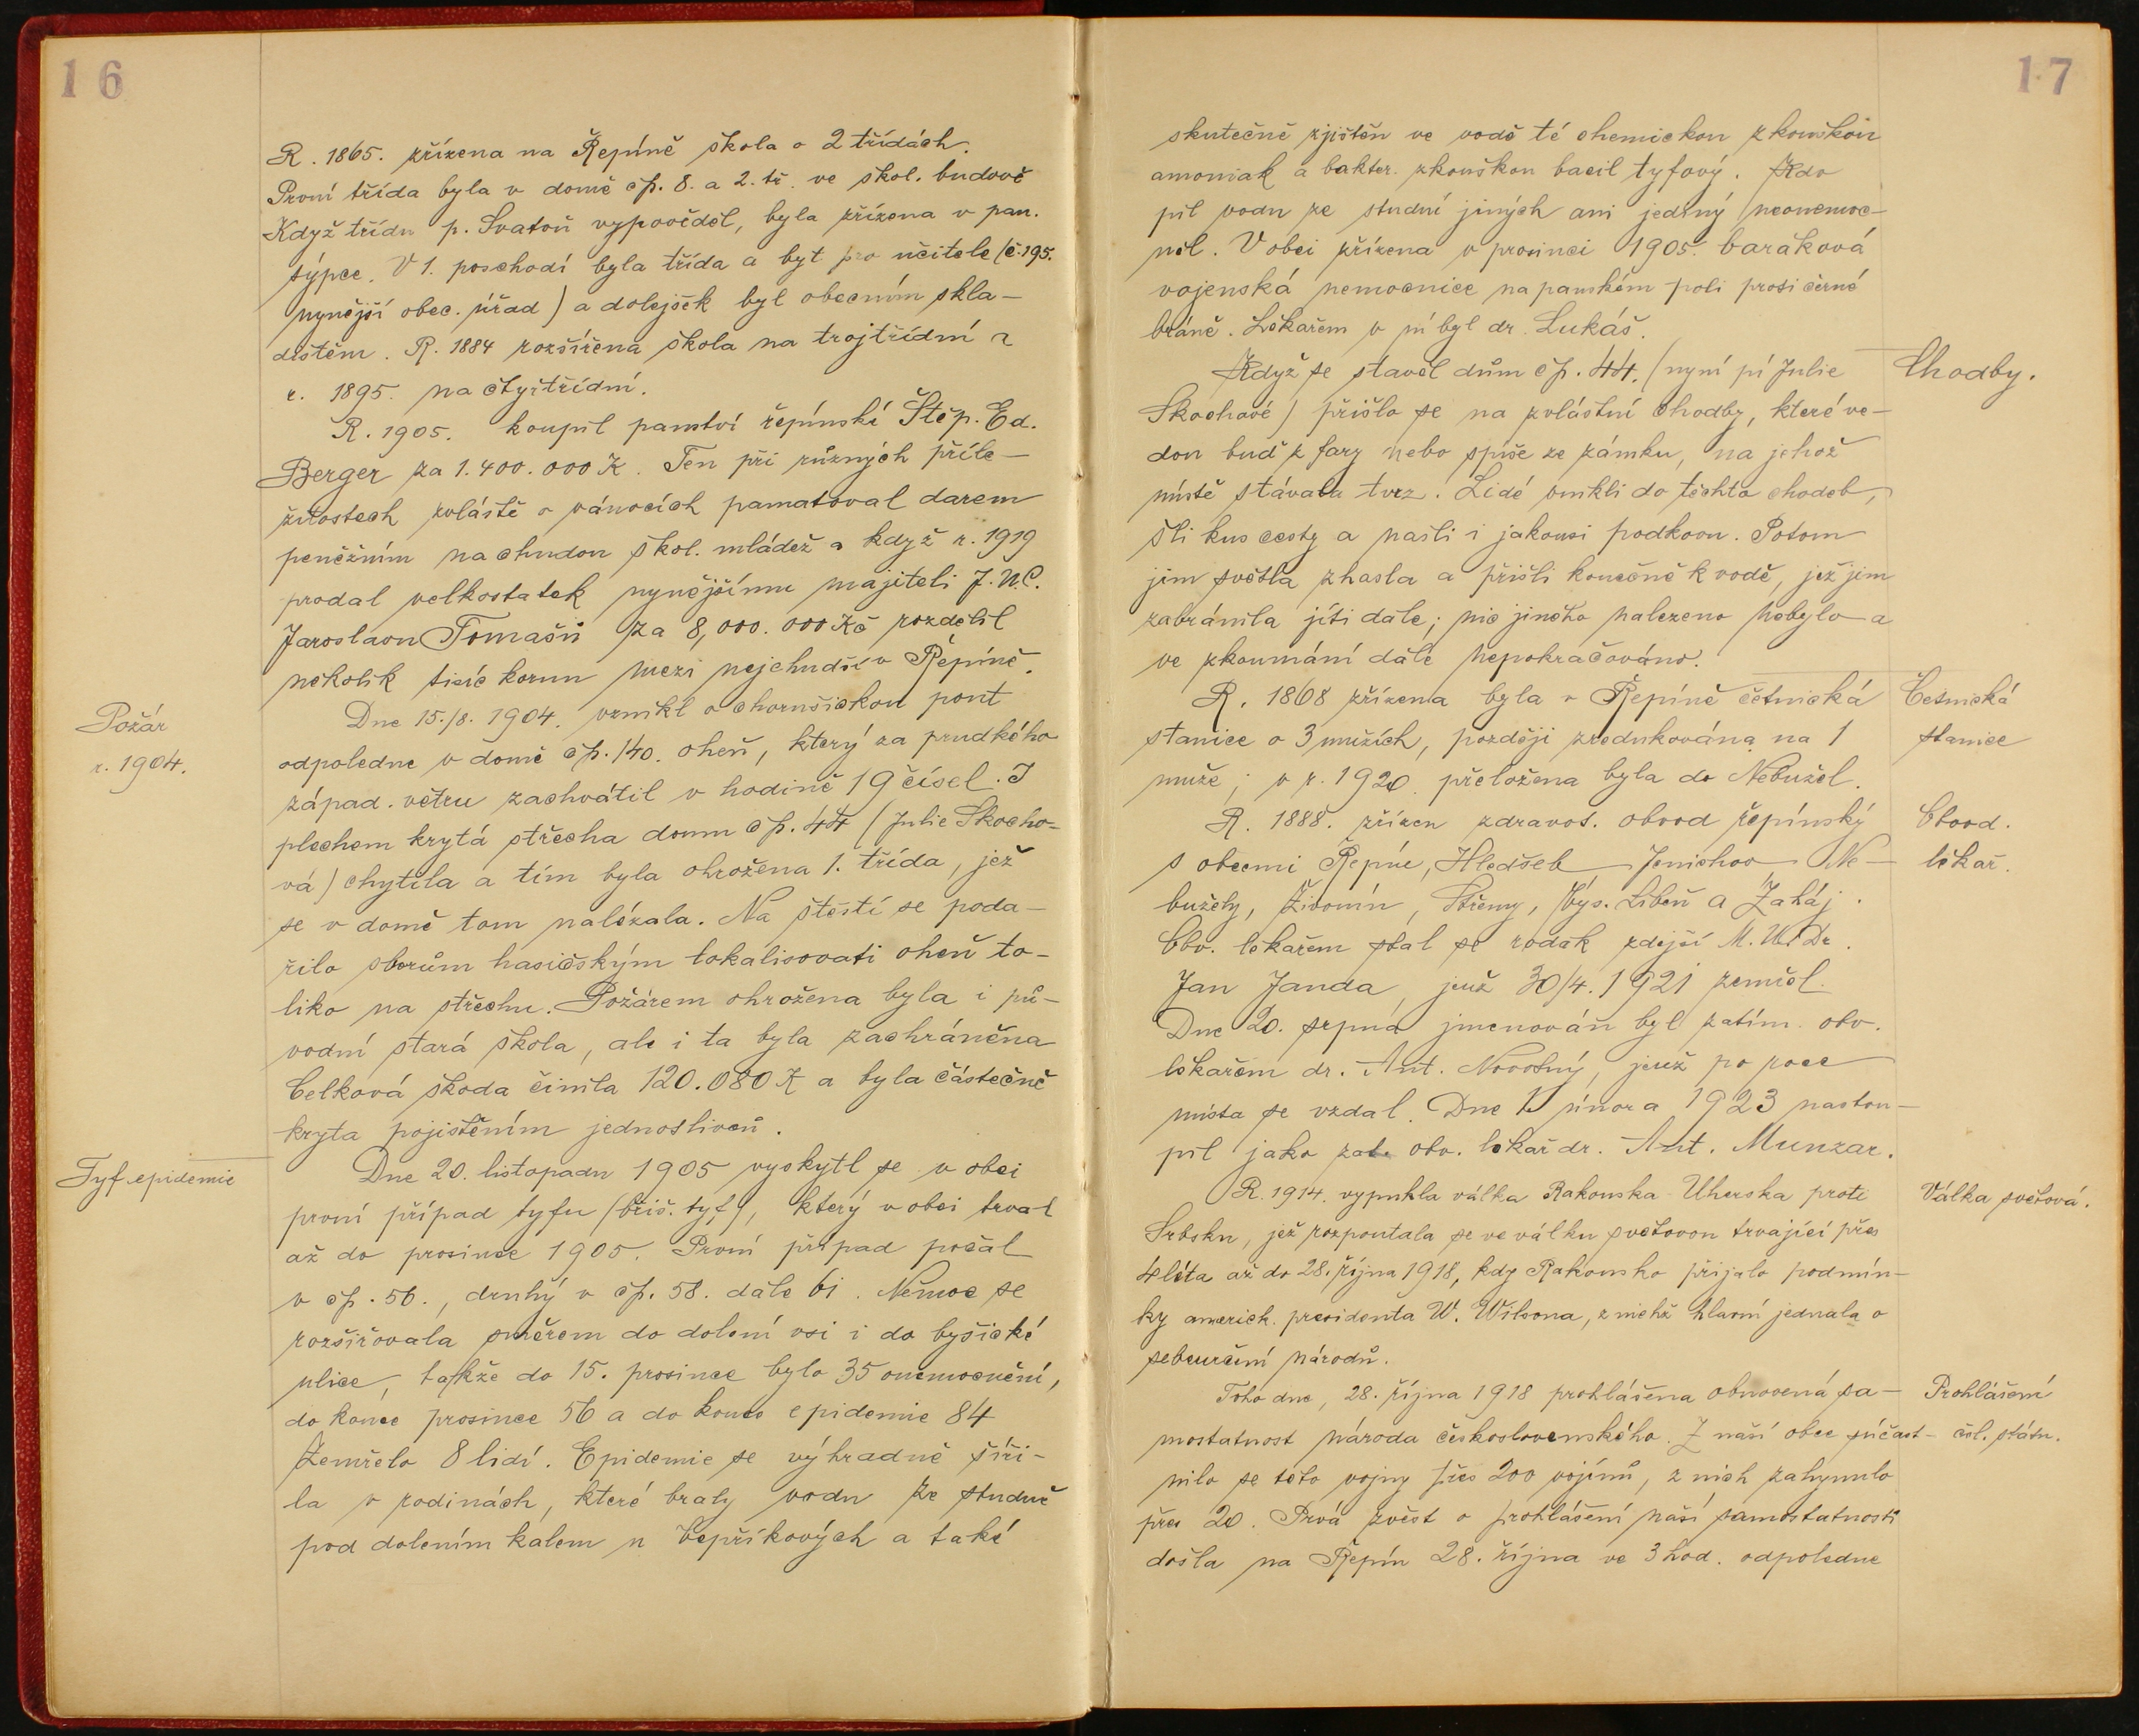 16
R. 1865. zřízena na Řepíně škola o 2 třídách.
První třída byla v domě čp. 8. a 2. tř. ve škol. budově
Když třídu p. Svatoň vypověděl, byla zřízena v pan.
sýpce. V 1. poschodí byla třída a byt pro učitele (č. 195.
nynější obec. úřad) a dolejšek byl obecním skla-
dištěm. R. 1884 rozšířena škola na trojtřídní a
r. 1895. na čtyřtřídní.
R. 1905. koupil panství řepínské Štěp. Ed.
Berger za 1.400.000 K. Ten při různých příle-
žitostech zvláště o vánocích pamatoval darem
peněžním na chudou škol. mládež a když r. 1919
prodal velkostatek nynějšímu majiteli J.U.C.
Jaroslavu Tomašů za 8,000.000 Kč rozdělil
několik tisíc korun mezi nejchudší v Řepíně.
Požár
r. 1904.
Dne 15./8. 1904. vznikl o chorušickou pouť
odpoledne v domě čp. 140. oheň, který za prudkého
západ. větru zachvátil v hodině 19 čísel. I
plechem krytá střecha domu čp. 44 (Julie Škocho-
vá) chytila a tím byla ohrožena 1. třída, jež
se v domě tom nalézala. Na štěstí se poda-
řilo sborům hasičským lokalisovati oheň to-
liko na střechu. Požárem ohrožena byla i pů-
vodní stará škola, ale i ta byla zachráněna
Celková škoda činila 120.080 K a byla částečně
kryta pojištěním jednotlivců.
Tyf. epidemie
Dne 20. listopadu 1905 vyskytl se v obci
první případ tyfu (břiš. tyf), který v obci trval
až do prosince 1905. První případ počal
v čp. 56., druhý v čp. 58. dále 61. Nemoc se
rozšiřovala směrem do dolení vsi i do byšické
ulice, takže do 15. prosince bylo 35 onemocnění,
do konce prosince 56 a do konce epidemie 84
Zemřelo 8 lidí. Epidemie se výhradně šíři-
la v rodinách, které braly vodu ze studně
pod dolením kalem u Vepříkových a také
17
skutečně zjištěn ve vodě té chemickou zkouškou
amoniak a bakter. zkouškou bacil tyfový. Kdo
pil vodu ze studní jiných ani jediný neonemoc-
něl. V obci zřízena v prosinci 1905. baráková
vojenská nemocnice na panském poli proti černé
bráně. Lékařem v ní byl dr. Lukáš.
Chodby.
Když se stavěl dům čp. 44. (nyní pí Julie
Škochové) přišlo se na zvláštní chodby, které ve-
dou buď z fary nebo spíše ze zámku, na jehož
místě stávala tvrz. Lidé vnikli do těchto chodeb,
šli kus cesty a našli i jakousi podkovu. Potom
jim světla zhasla a přišli konečně k vodě, jež jim
zabránila jíti dále; nic jiného nalezeno nebylo a
ve zkoumání dále nepokračováno.
Četnická
stanice
R. 1868 zřízena byla v Řepíně četnická
stanice o 3 mužích, později zredukována na 1
muže; v r. 1920. přeložena byla do Nebužel.
Obvod.
lékař.
R. 1888. zřízen zdravot. obvod řepínský
s obcemi Řepín, Hledseb, Jenichov, Ne-
bužely, Živonín, Střemy, Vys. Libeň a Zaháj.
Obv. lékařem stal se rodák zdejší M.U.Dr.
Jan Janda, jenž 30/4. 1921 zemřel.
Dne 20. srpna jmenován byl zatím. obv.
lékařem dr. Ant. Novotný, jenž po roce
místa se vzdal. Dne 15 února 1923 nastou-
pil jako zat. obv. lékař dr. Ant. Munzar.
Válka světová.
R. 1914. vypukla válka Rakouska-Uherska proti
Srbsku, jež rozpoutala se ve válku světovou trvající přes
4 léta až do 28. října 1918, kdy Rakousko přijalo podmín-
ky americk. presidenta W. Wilsona, z nichž hlavní jednala o
sebeurčení národů.
Prohlášení
čsl. státu.
Toho dne, 28. října 1918 prohlášena obnovená sa-
mostatnost národa československého. Z naší obce súčast-
nilo se této vojny přes 200 vojínů, z nich zahynulo
přes 20. Prvá zvěst o prohlášení naší samostatnosti
došla na Řepín 28. října ve 3 hod. odpoledne